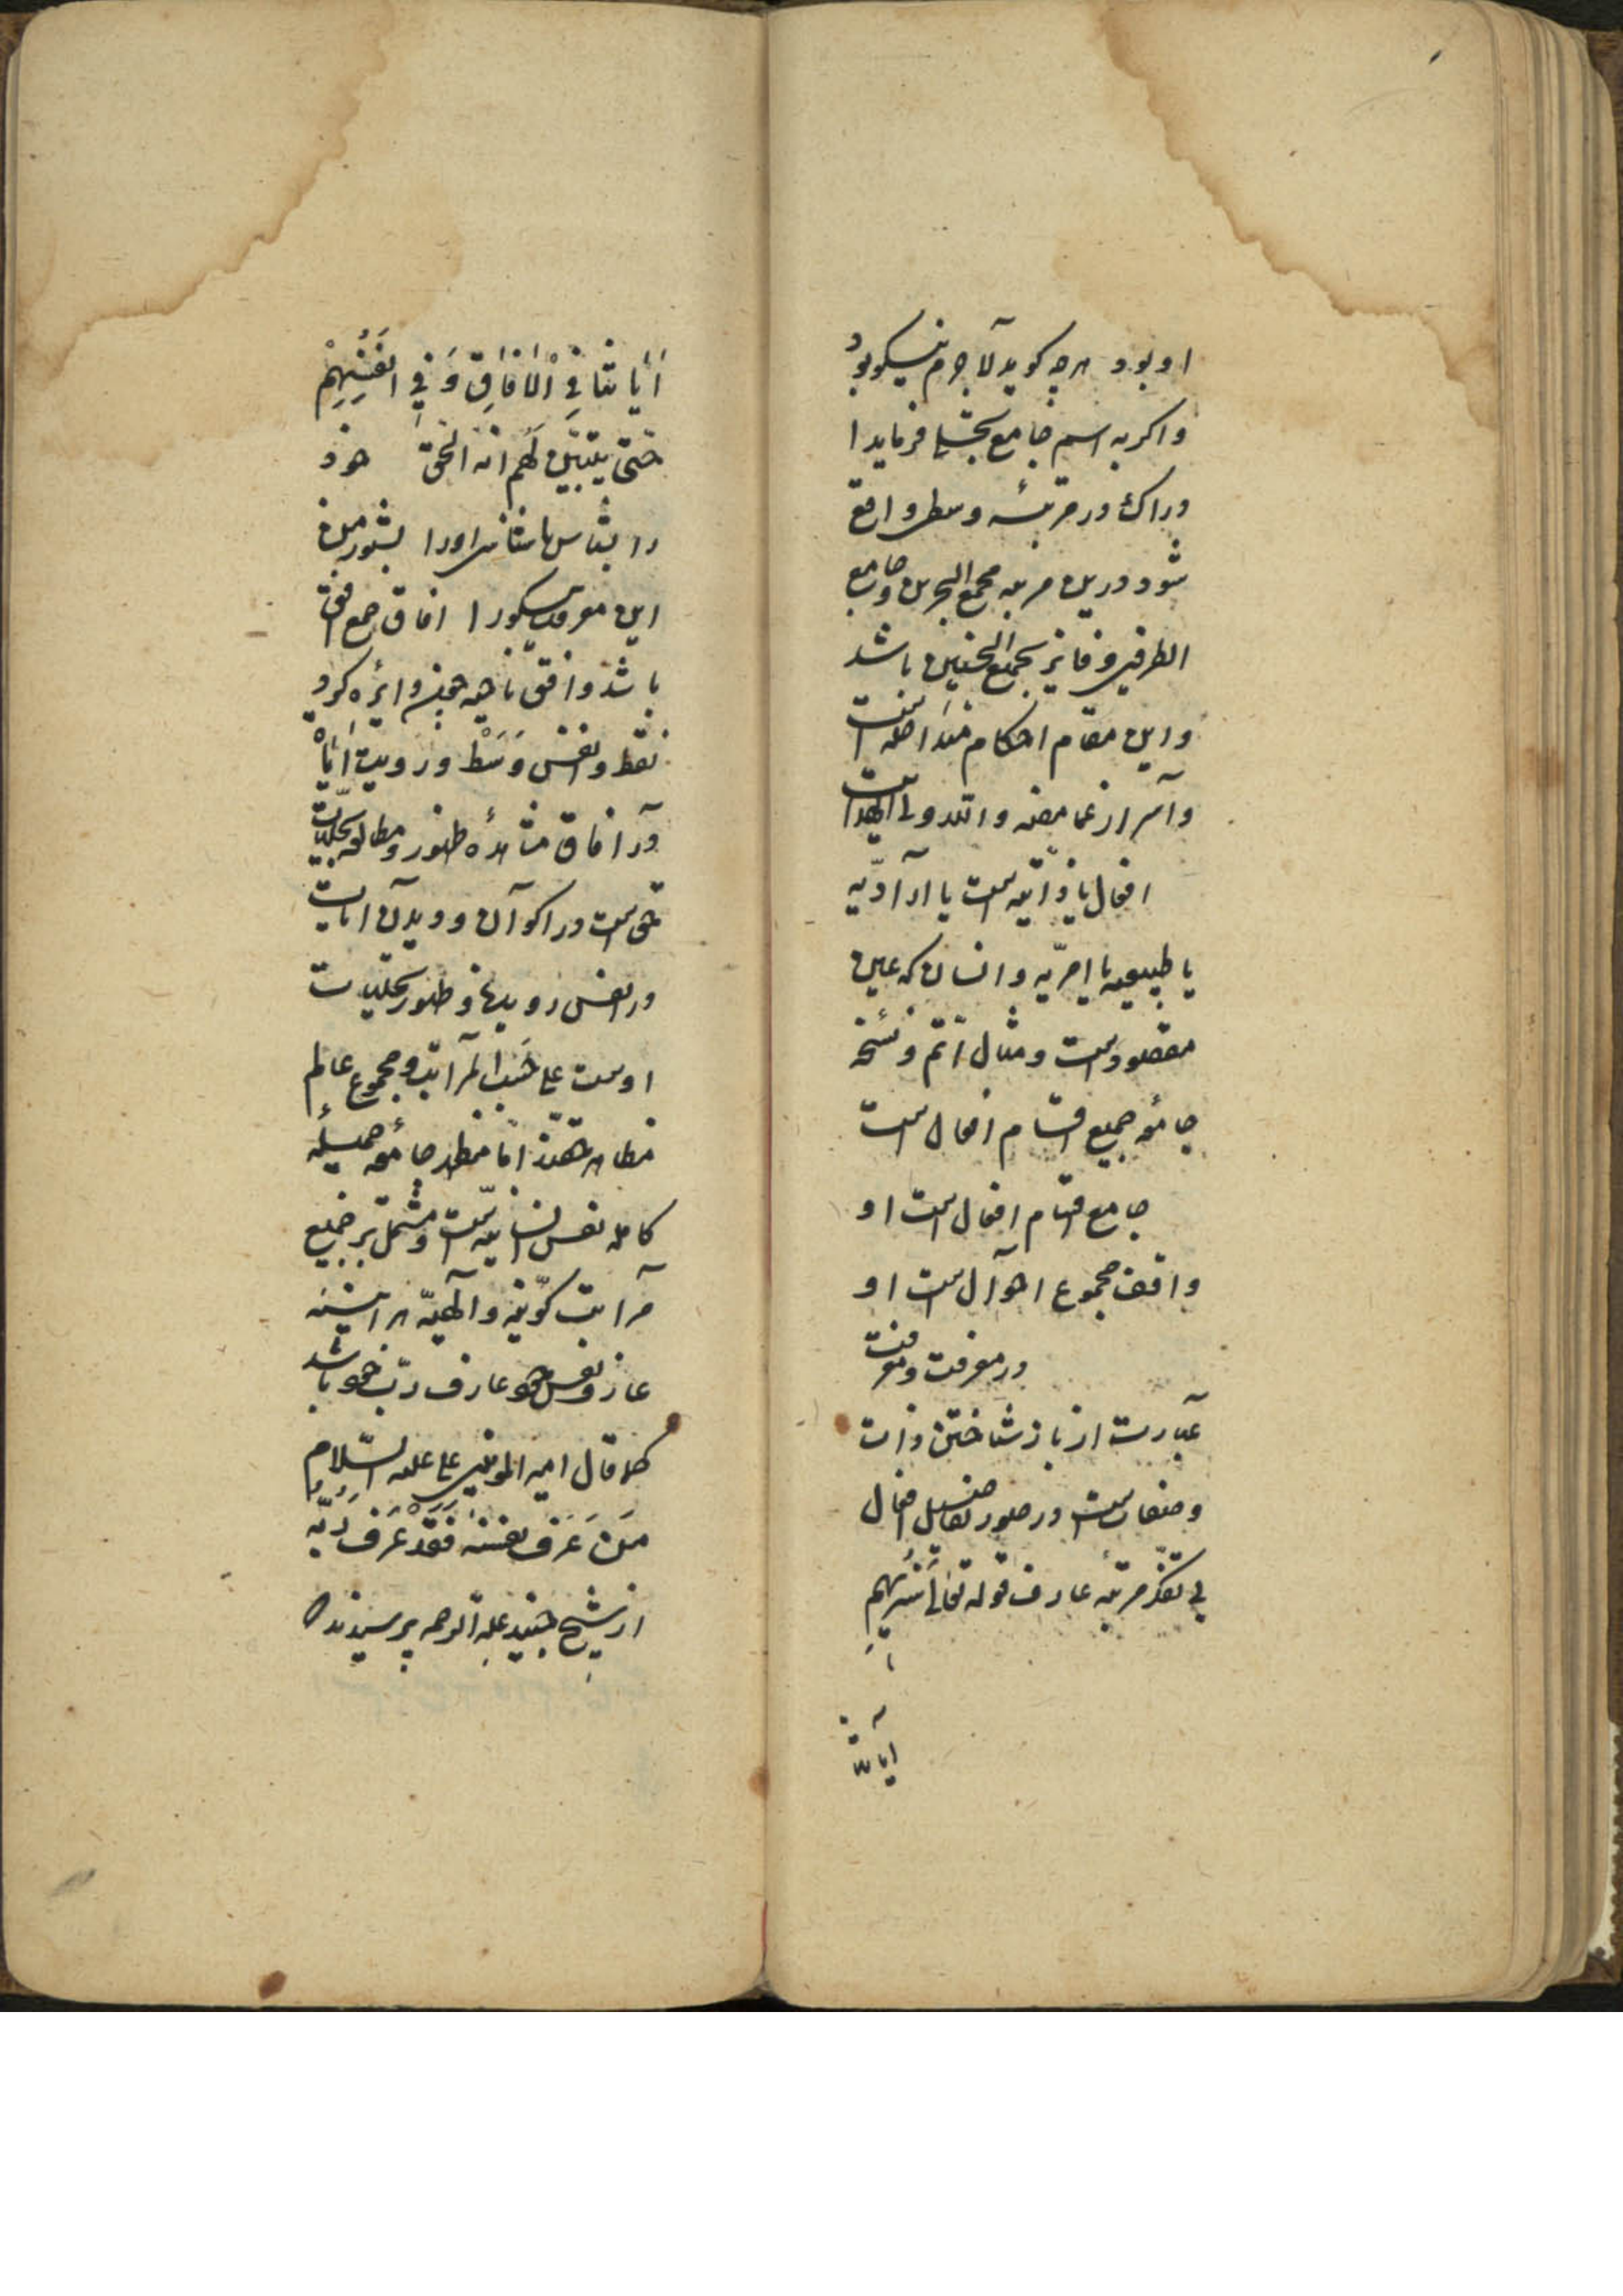 او بود هرچه کوید لا جرم نیکو بود
واکر به اسم جامع تجلی فرماید ا
دراک در مرتبهٔ وسط واقع
شود درین مرتبه مجمع البحرین و جامع
الطرفین و فایز بجمع باشد
واین مقام احکام است
وآسرار غامضه
افعال یا ذاتیه است یا ارآدّیه
یا طبیعیه یا امریّه وانسان که عین
مقصودست ومثال اتم ونسخهٔ
جامعه جمیع اقسام افعال است
جامع اقسام افعال است او
واقف مجموع احوآل است او
در معرفت ومعرفت
عبارت از باز شناختن ذات
وصفات است در صور تفاصیل افعال
مرتبه عارف قوله تعالی سَنُرِیهِمِ
آیاتنا
اٰیَاتنَا فِی الْاٰفَاقِ وَ فِی اَنْفُسِهِمْ
حَتّی یَتَبَیَّنَ لَهُم انه الحق خود
را بشناس تا شناسی اورا بشنو ز من
این نیکورا افاق جمع افق
باشد وافق ناحیه چون دائره کرد
نقطه وانفس وَسَطْ ورویت اٰیَاتْ
در آفاق مشاهدهٔ ظهور ومطالعه تجلیات
حق است در اکوآن ودیدن ایات
در انفس وظهور تجلیات
اوست علی حَسَب المرآتب ومجموع عالم
مظاهر حقند امّا مظهر جامعهٔ
کامله نفس انسانیه است ومشتمل بر جمیع
مرآتب کونیّه وآلهیّه هر آیینه
عارف نفس خود عارف ربّ خود باشد
کما قال امیر المومنین علی علیه السّلام
مَنْ عَرَفَ نفسَه فَقَدْ عَرَفَ رَبَّه
از شیخ جنید علیه الرحمه پرسیدند که